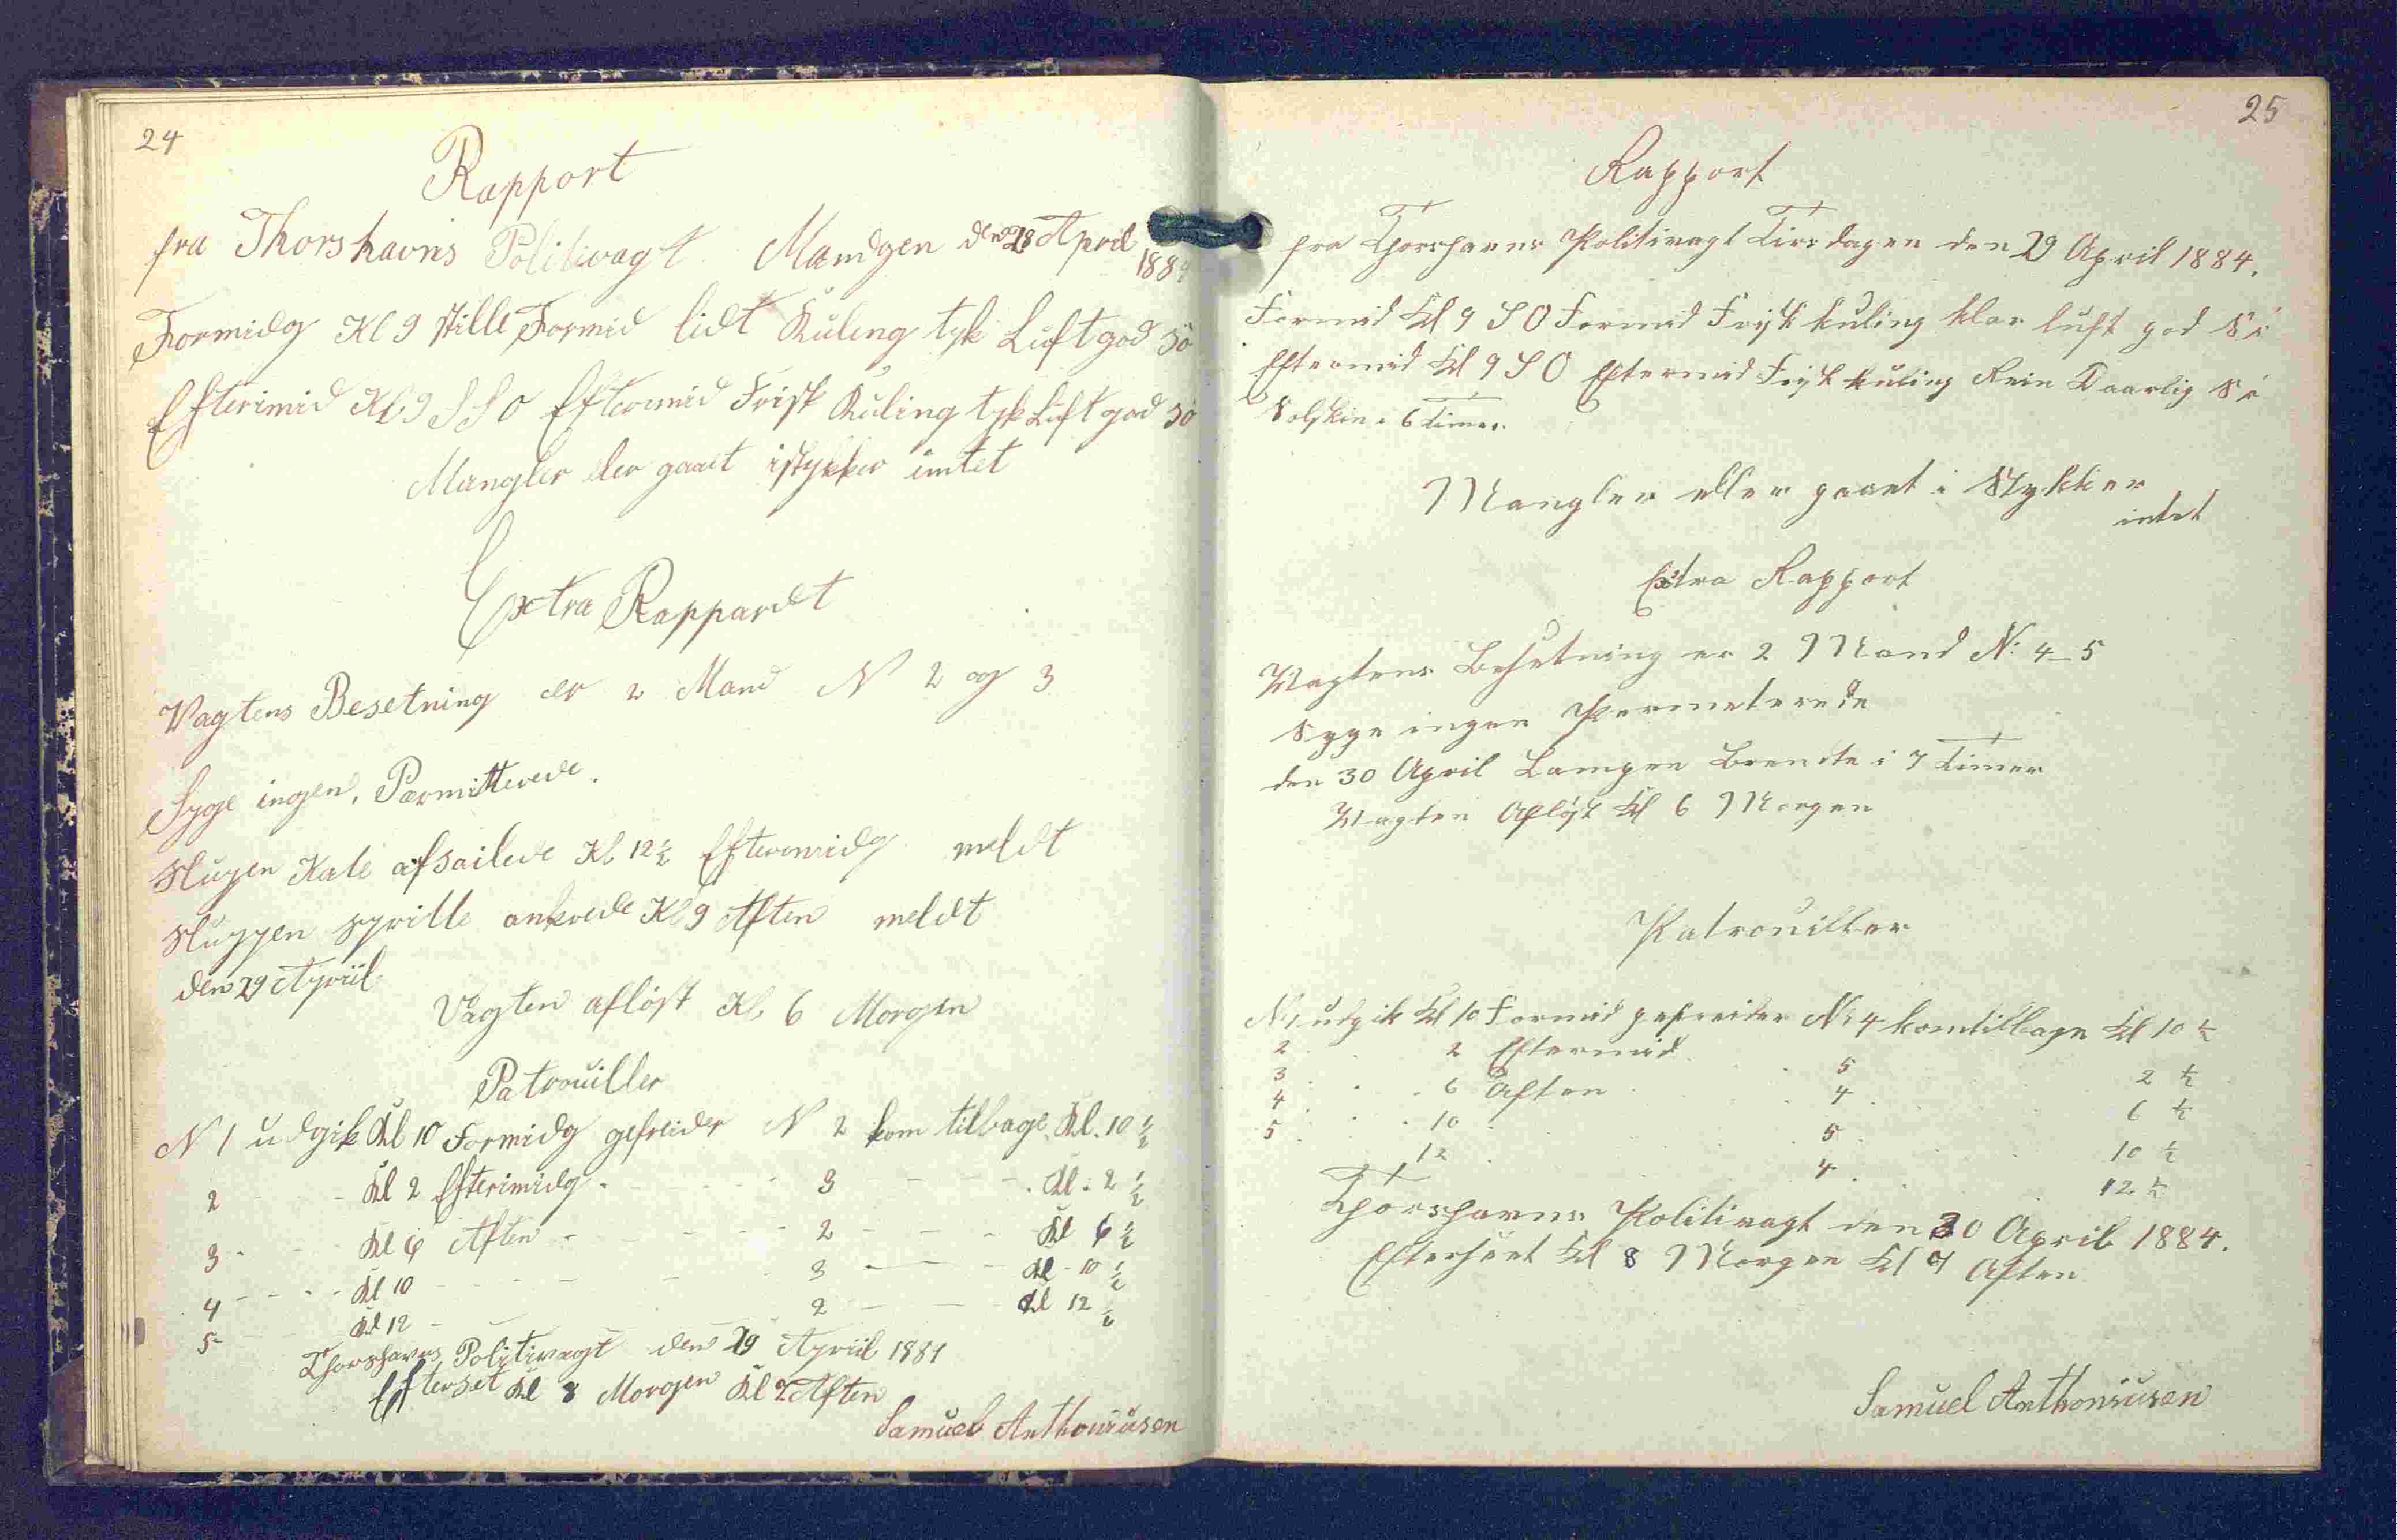 24
Rapport
fra Thorshavns Politivagt. Mandgen den 28 April
1884
Formidg Kl 9 stille Formid lidt Kuling tyk Luft god sö
Efterimid Kl 9 SSO Efterimid Frisk Kuling tyk Luft god sö
Mangler eler gaaet istykker intet
Extra Rappardt
Vagtens Besetning er 2 Mand N 2 og 3
Syge ingen, Parmitterede.
Slugen Kate afsailede Kl 12½ Efteremidg meldt
Sluppen sprille ankrede Kl 9 Aften meldt
den 29 Apriil
Vagten afløst Kl. 6 Morgen
Patrouiller
N 1 udgik Kl 10 Formidg gefreider N 2 kom tilbage Kl. 10 ½
2 - - Kl 2 Efterimidg - - - 3 - - - Kl. 2 ½
3 - - Kl 6 Aften - - - 2 - - - Kl 6 ½
4 - - - Kl 10 - - - 3 - - - Kl - 10 ½
5 - - Kl 12 - - - 2 - - Kl 12 ½
Thorshavns Politivagt den 29 Apriil 1884
Efterset Kl 8 Morgen Kl 9 Aften
Samuel Anthoniusen
25
Rapport
fra Thorshavns Politivagt Tirsdagen den 29 April 1884.
Formid Kl 9 SO Formid Frisk kuling klar luft god Sö
Eftermid Kl 9 SO Eftermid Frisk kuling Rein Daarlig Sö
Solskin i 6 Timer
Mangler eller gaaet i Stykker
intet
Extra Rapport
Wagtens Besetning er 2 Mand N: 4-5
Syge ingen Permeterede
den 30 April Lampen Brendte i 7 Timer
Wagten Afløst Kl 6 Morgen
Patrouiller
N: 1 udgik Kl 10 Formid gefreider N: 4 kom tilbage Kl 10 ½
2 . . 2 Eftermid . . 5 . . 2 ½
3 . . 6 Aften . . 4 . . 6 ½
4 . . 10 . . 5 . . 10 ½
5 . . 12 . . 4 . . 12 ½
Thorshavns Politivagt den 30 April 1884.
Efterseet Kl 8 Morgen Kl 9 Aften
Samuel Anthoniusen